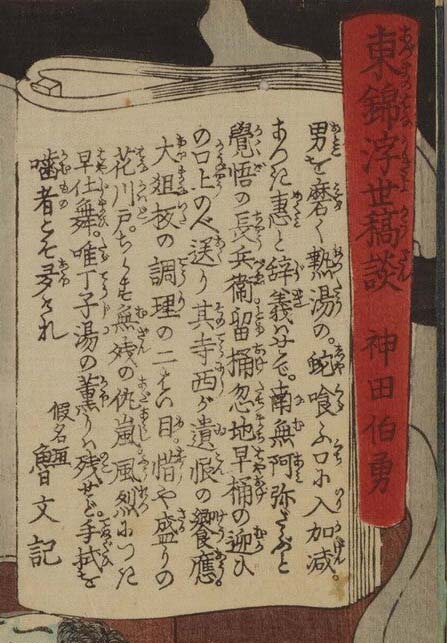 東錦浮世稿談
神田伯勇
男を磨く熱湯の。蛇喰ふ口に入加減。
恵と辞義はせで。南無阿弥だぶと
覺悟の長兵衛留桶忽地早桶の迎ひ
の口上のべ送り其寺西が遺恨の饗應。
大狙板の調理の二はい目。惜や盛りの
花川戸。ちらすも無残の仇嵐風烈につき
早仕舞。唯丁子湯の薫りハ残せど。手拭を
噛者こそ多かれ
假名垣
魯文記